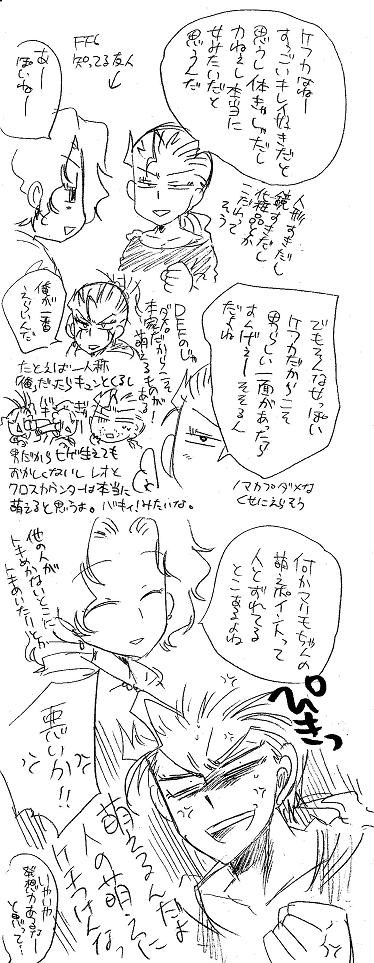 ケフカはねー
すっごいキレイ好きだと
思うし体きゃしゃだし
力ねぇし本当に
女みたいだと
思うんだ
FF6
知ってる友人
あー
ぽいねー
人形すきだし
鏡すきだし
化粧品とか
こだわって
そう
でもそんな
ケフカだからこそ
男らしい一面があったら
すんげぇーそそるん
だよね
俺が一番
えらいんだ
萌えるものがある
たとえば一人称
俺だったらキュンとくるし
男だからヒゲ生えても
おかしくないし レオと
クロスカウンターは本当に
萌えると思うよ。バキィ!みたいな。
ノマカプダメな
くせにえらそう
何かマリモちゃんの
萌えポイントって
人とずれてる
とこあるよね
他の人が
トキめかないとこに
トキめいたりとか
ぴきっ
悪いか!!
萌えるんだよ
人の萌えに
ケチつけんなっ
いやいや
発想力あるなー
と思って…